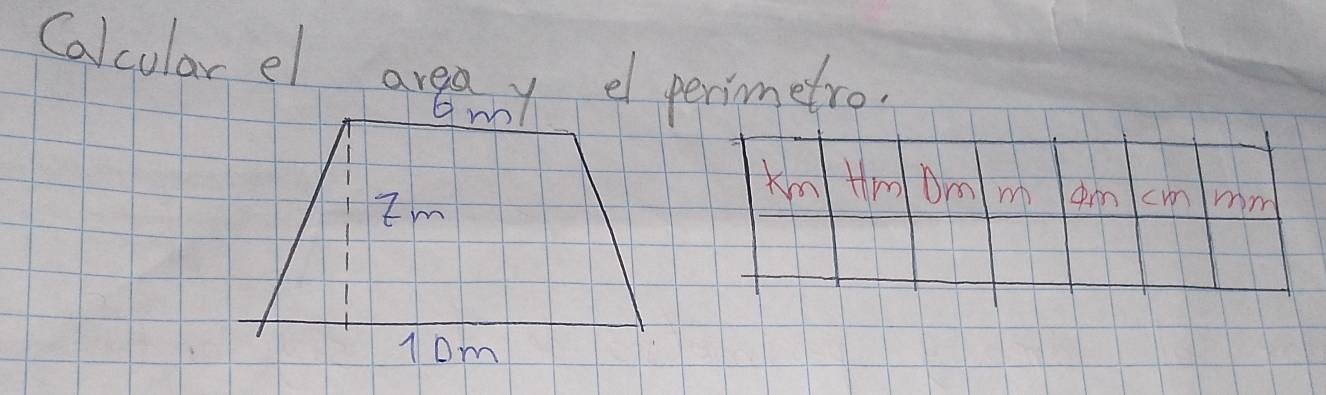 Calcular el area y el perimetro.
6m
7m
10m
Km Hm Dm m dm cm mm